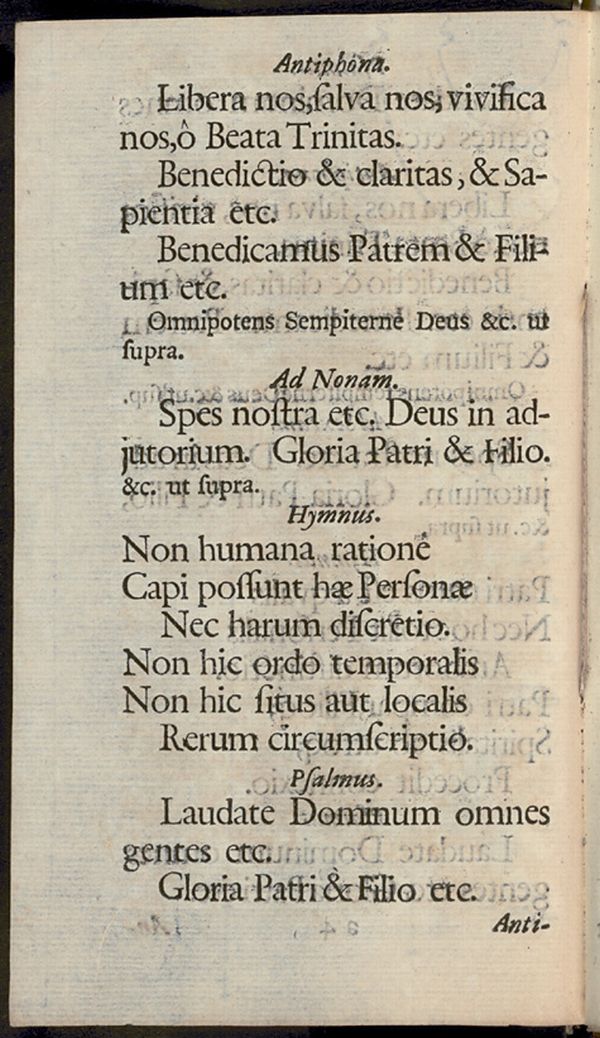 Antiphona.
Libera nos, ſalva nos, vivifica
nos, ô Beata Trinitas.
Benedictio & claritas, & Sa-
pientia etc.
Benedicamus Patrem & Fili-
um etc.
Omnipotens Sempiterne Deus &c. ut
ſupra.
Ad Nonam.
Spes noſtra etc. Deus in ad-
jutorium. Gloria Patri & Filio.
&c. ut ſupra.
Hymnus.
Non humana ratione
Capi poſſunt hæ Perſonæ
Nec harum diſcretio.
Non hic ordo temporalis
Non hic ſitus aut localis
Rerum circumſcriptio.
Pſalmus.
Laudate Dominum omnes
gentes etc.
Gloria Patri & Filio etc.
Anti-